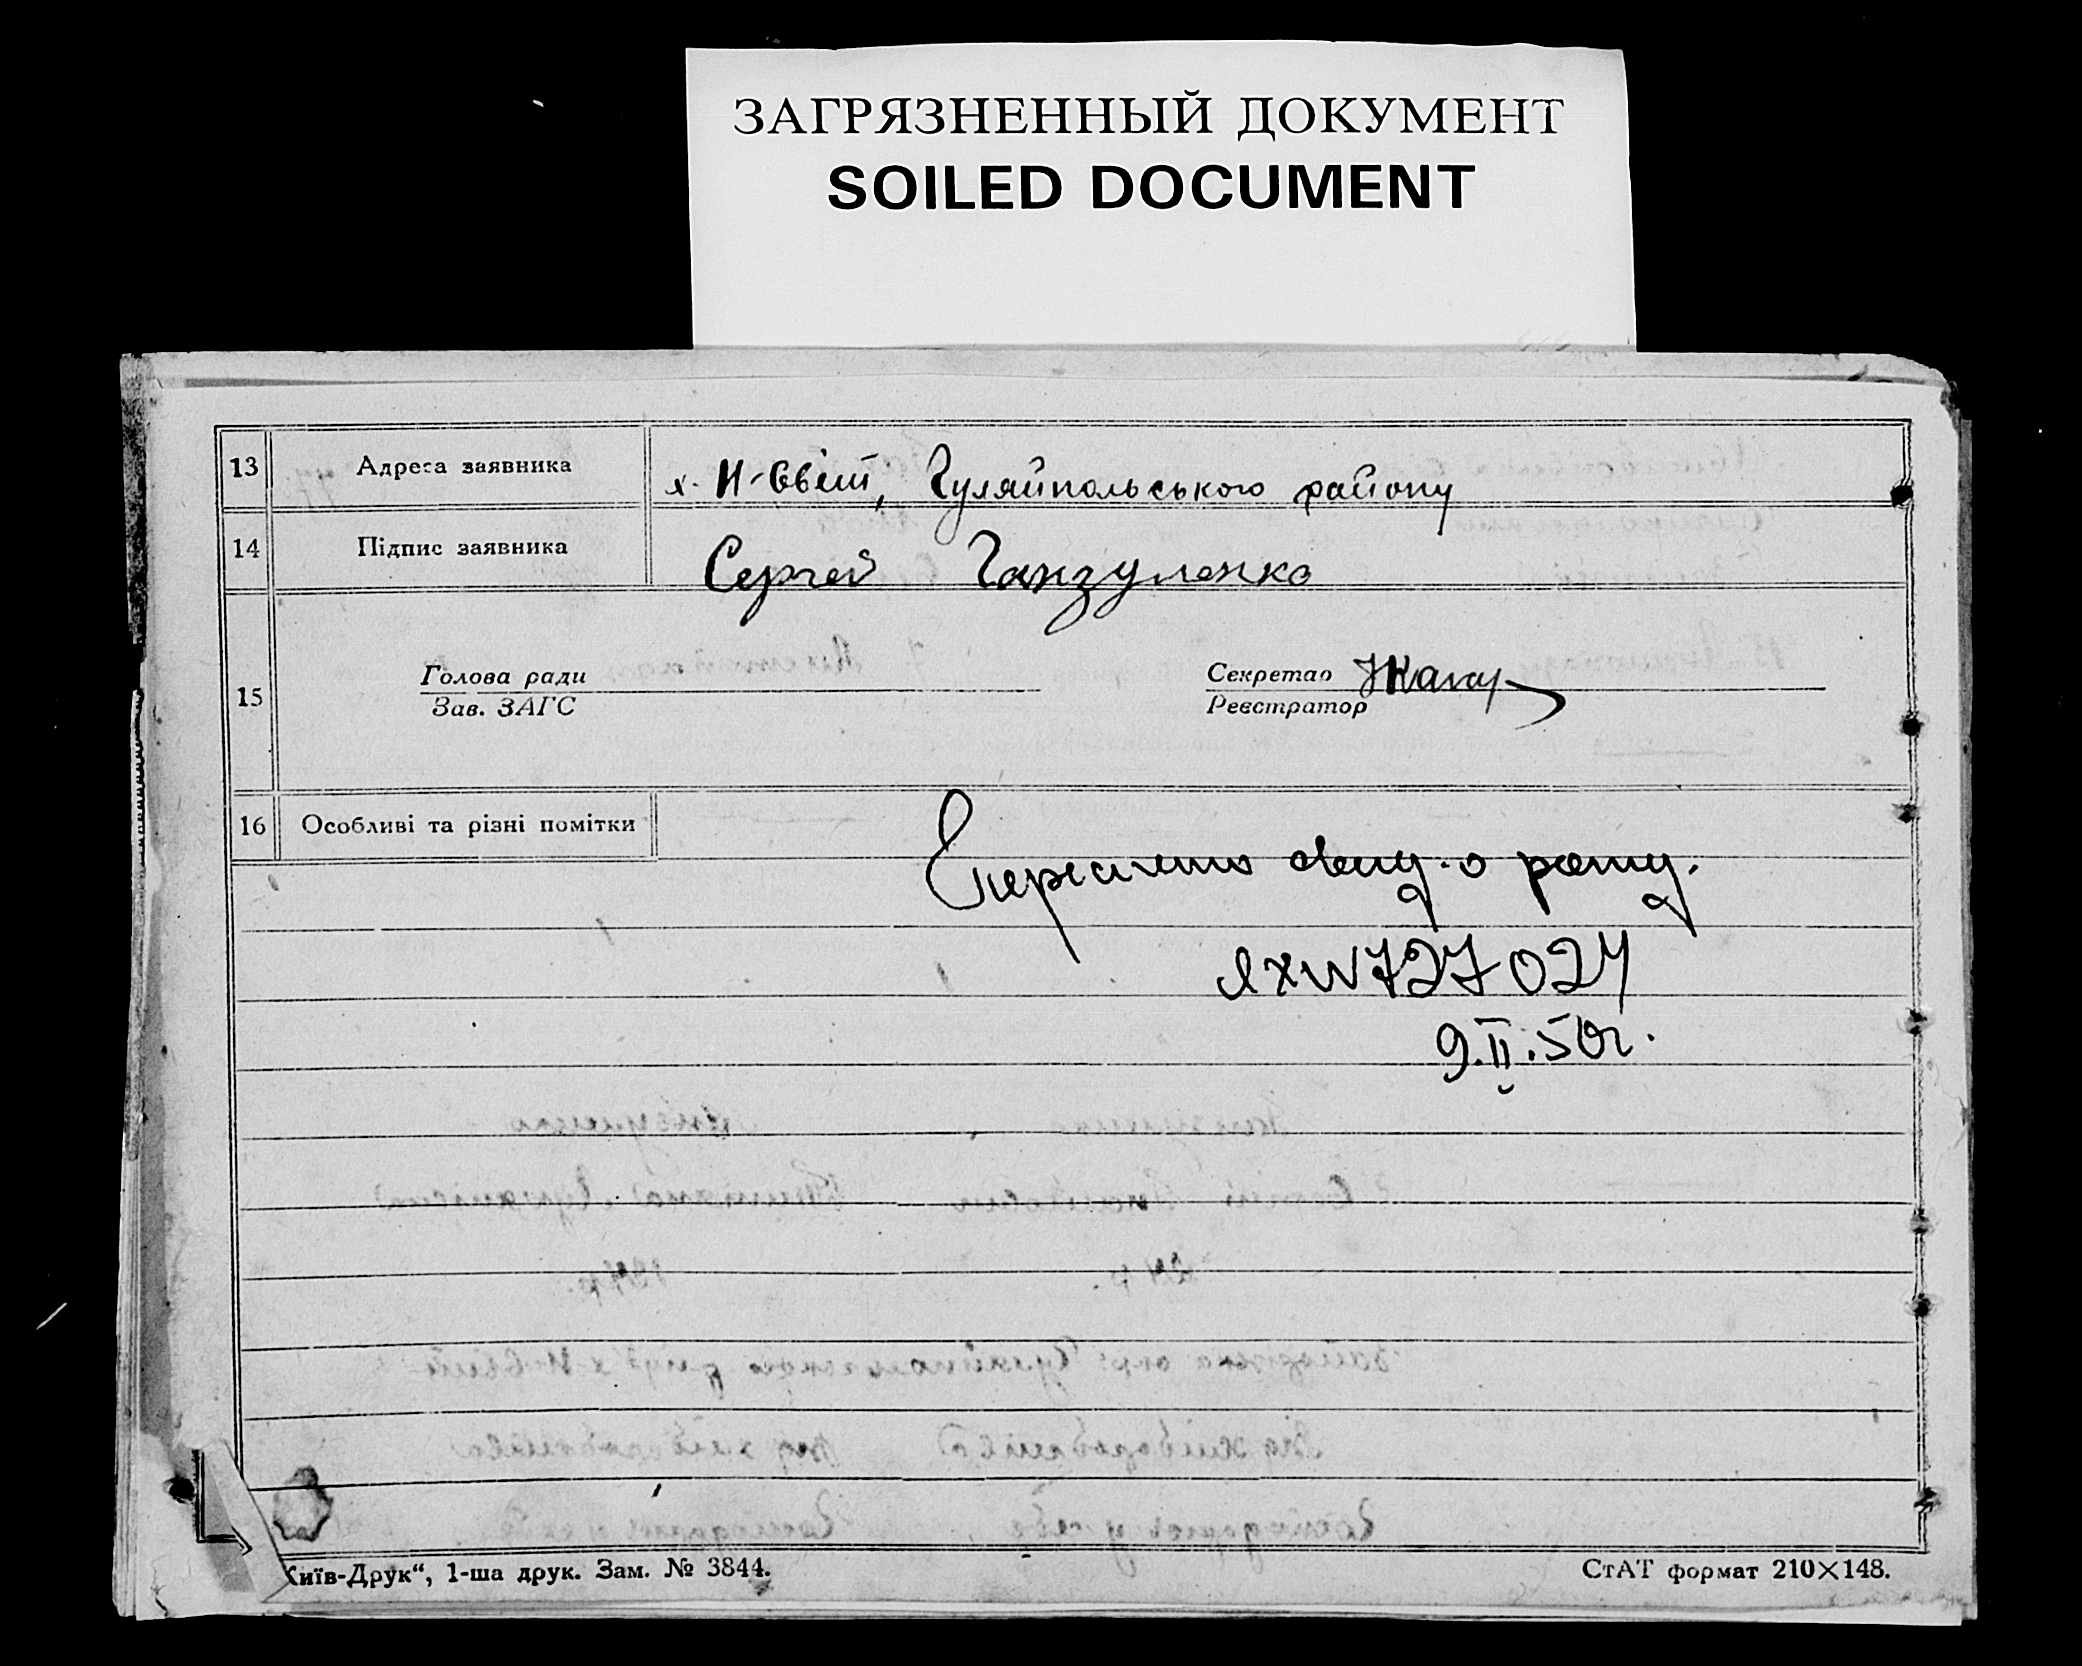 ЗАГРЯЗНЕННЫЙ ДОКУМЕНТ
SOILED DOCUMENT
13 Адреса заявника х. Н-Світ, Гуляйпольського району
14 Підпис заявника Сергей Ганзуленко
15 Голова ради Секретар
Зав. ЗАГС Реєстратор
16 Особливі та різні помітки
свид. о рожд.
727024
9.II.50г.
Київ-Друк“, 1-ша друк. Зам. № 3844. СтАТ формат 210×148.